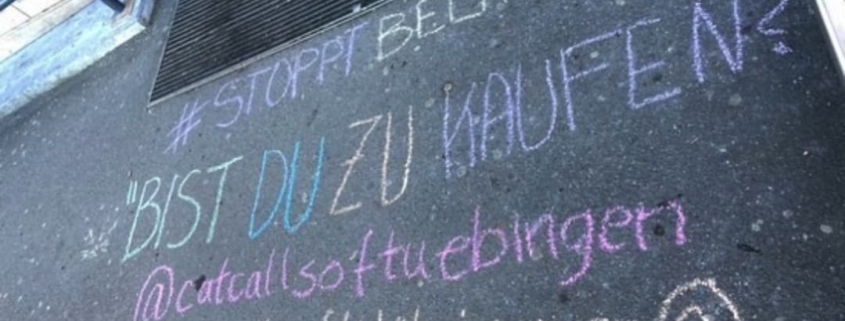 #STOPPT BEL
"BIST DU ZU KAUFEN?
@catcallsoftuebingen